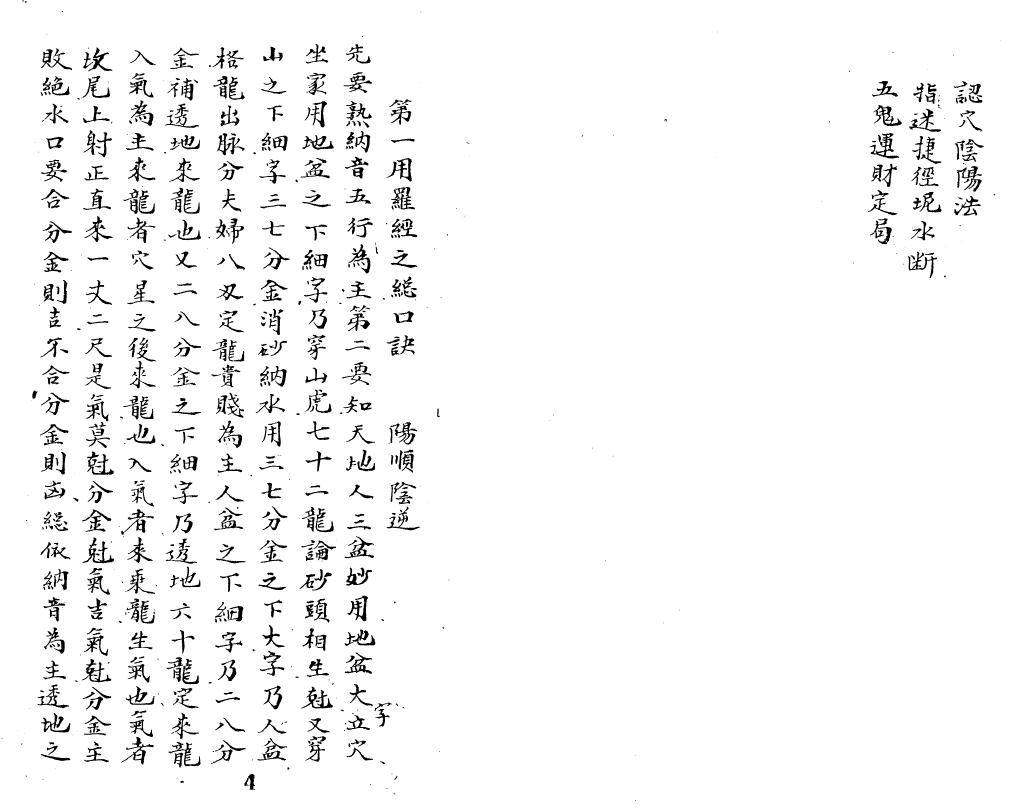 認穴陰陽法
指迷捷徑坭水断
五鬼運財定局
第一用羅經之総口訣　陽順陰逆
先要熟納音五行為主第二要知天地人三盆妙用地盆大字立穴
坐家用地盆之下細字乃穿山虎七十二龍論砂頭相生尅又穿
山之下細字三七分金消砂納水用三七分金之下大字乃人盆
格龍出脉分夫婦八双定龍貴賤為主人盆之下細字乃二八分
金補透地來龍也又二八分金之下細字乃透地六十龍定來龍
入氣為主來龍者穴星之後來龍也入氣者來乘龍生氣也氣者
坟尾上射正直來一丈二尺是氣莫尅分金尅氣吉氣尅分金主
敗絶水口要合分金則吉不合分金則凶総依納音為主透地之
4